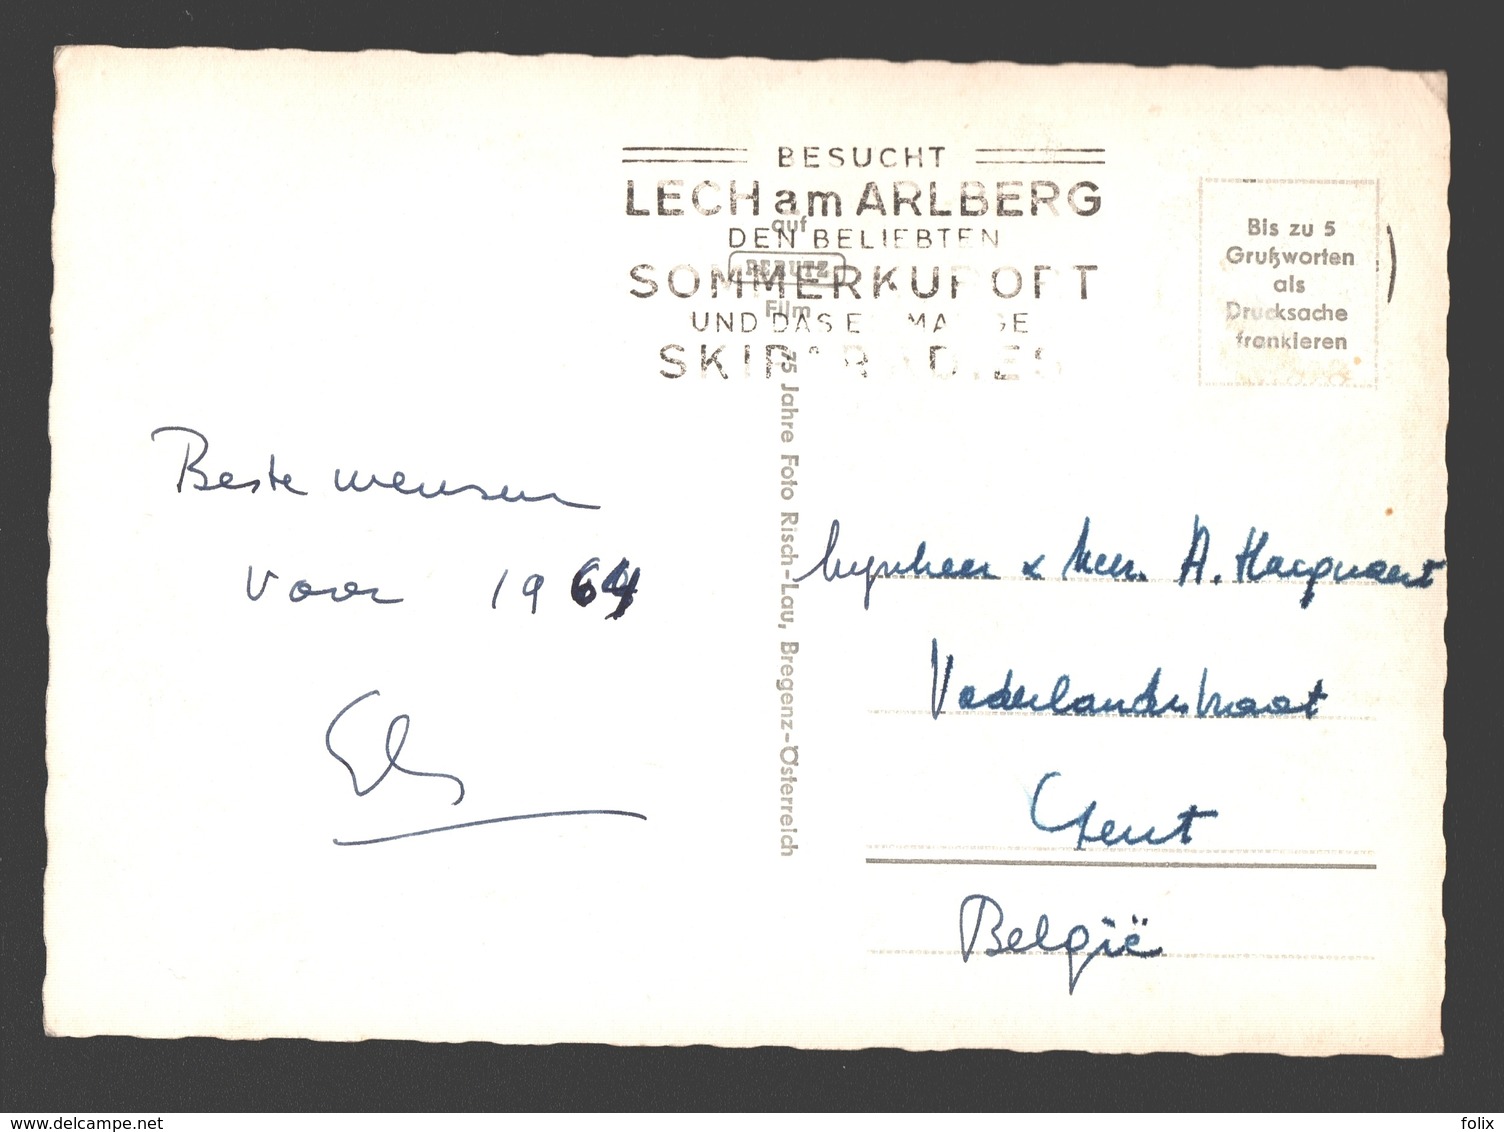 BESUCHT
LECH am ARLBERG
DEN BELIEBTEN
SOMMERKURORT
UND DAS
auf
PERUTZ
Film
Bis zu 5
Grußworten
als
Drucksache
frankieren
75 Jahre Foto Risch-Lau, Bregenz-Österreich
Beste wensen
voor 1964
Mynheer & Mevr. A. Hacquaert
Vaderlandstraat
Gent
België
www.delcampe.net
folix